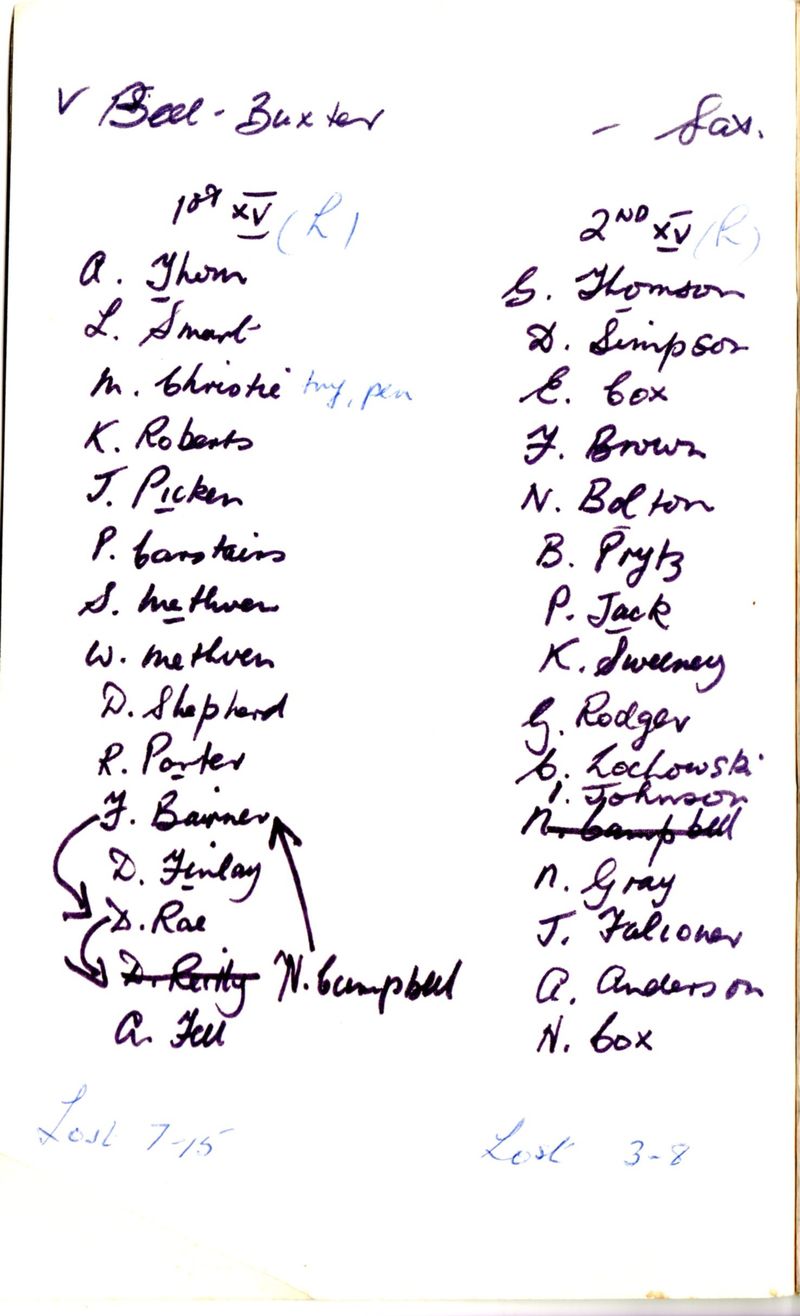 V Bell-Buxter - Sat.
1st XV (L)
A. Thom
L. Smart
M. Christie try, pen
K. Roberts
J. Picken
P. Carstairs
S. Methven
W. Methven
D. Shepherd
R. Porter
F. Bairner
D. Finlay
D. Rae
D. Reilly N. Campbell
A. Fell
Lost 7-15
2ND XV (R)
G. Thomson
D. Simpson
E. Cox
F. Brown
N. Bolton
B. Prytz
P. Jack
K. Sweeney
G. Rodger
C. Lochowski
I. Johnson
N. Campbell
N. Gray
J. Falconer
A. Anderson
N. Cox
Lost 3-8